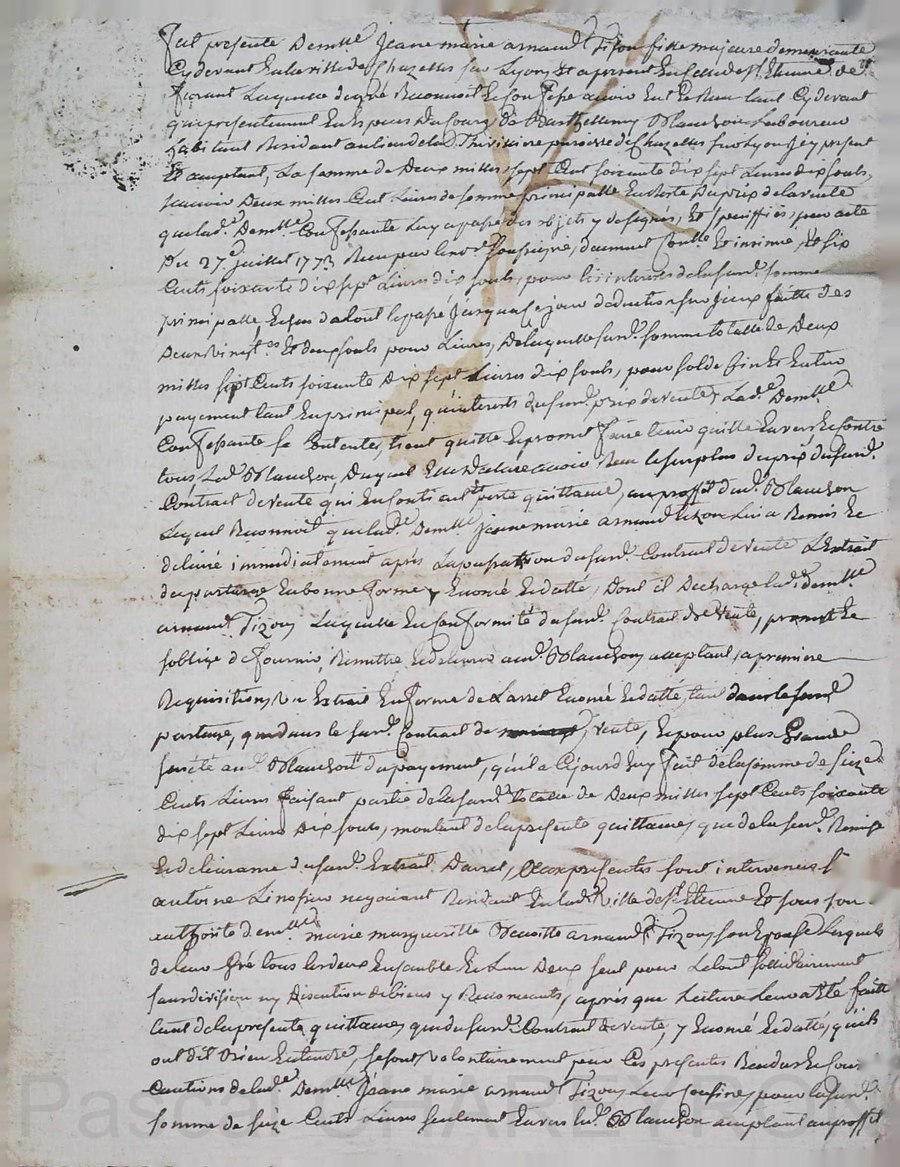 fut presente Demlle Jeane marie arnaud Tizon fille majeure demeurante
Cydevant en la ville de Chazelles sur Lyon, Et apresent en celle de st Etienne de
furant Laquelle de gré Reconnoit Et Confesse avoir Eu Et Reçu tant Cydevant
que presentement En Especes Du Cours, De Barthellemy Blanchon Laboureur
habitant Residant au lieu de la Thivilliere paroisse de Chazelles sur Lyon Icy present
Et acceptant, La somme de Deux milles sept Cent soixante dix sept Livres dix sols,
scavoir Deux milles Cent Livres de somme principalle En Reste Du prix de la vente
que lad.e Demlle Confessante Luy a passé des objets y designes, Et speciffiés, par acte
Du 27.e Juillet 1773 Reçu par le no.re soussigné, duement Contrôlé Et insinué, Et six
Cents soixante dix sept Livres dix sols, pour les interets de la susd. somme
principalle, Echus dalors le passé Jusqu'a Ce jour deduction sur Jceux faitte des
Deux vingt.es Et deux sols pour Livres, De laquelle susd. somme totalle de Deux
milles sept Cents soixante Dix sept Livres dix sols, pour solde fin Et Entier
payement tant En principal, qu'interets dususd. prix de vente, Lad.e Demlle
Confessante se Contente, tient quitte Et promet faire tenir quitte Envers Et Contre
tous Led. Blanchon, Duquel Elle Declare avoir Reçu le surplus du prix dusud.
Contrat de vente qui En Contient porte quittance, au proffit dud. Blanchon
Lequel Reconnoit que lad.e Demlle Jeanne marie arnaud tizon Lui a Remis Et
delivré immediatement après La passation du susd. Contrat de vente L'Extrait
du partage En bonne forme y Enoncé Et datté, Dont il Decharge lad. demlle
arnaud Tizon, Laquelle En Conformité du susd. Contrat De vente, promet Et
s'oblige de fournir, Remettre Et delivrer aud. Blanchon acceptant, a premiere
Requisition, Un Extrait En forme de L'arret Enoncé Et datté, tant dans le susd.
partage, que dans le susd. Contrat de vente, Et pour plus Grande
sureté aud. Blanchon du payement, qu'il a Cejourd'huy fait de la somme de seize
Cents Livres faisant partie de la susd. totalle de Deux milles sept Cents soixante
dix sept Livres Dix sols, montant de la presente quittance, que de la susd. Remise
Et delivrance dususd. Extrait D'arret, aux presentes sont intervenus sr
antoine negociant Residant En lad. Ville de st Etienne Et sous son
authorité demlle marie marguerite arnaud Tizon son Epouse Lesquels
de leur Gré tous les deux Ensemble Et L'un Deux seul pour Le tout sollidairement
sans division ny discution de biens y Renonceants, après que Lecture Leur a Eté faitte
tant de la presente quittance, que dusud. Contrat de vente, y Enoncé Et datté, qu'ils
ont dit Bien Entendre, se sont volontairement par Ces presentes Rendus Et sont
Cautions de lad.e Demlle Jeane marie arnaud Tizon Leur Cousine, pour la susd.
somme de seize Cents Livres seulement Envers led. Blanchon acceptant au proffit